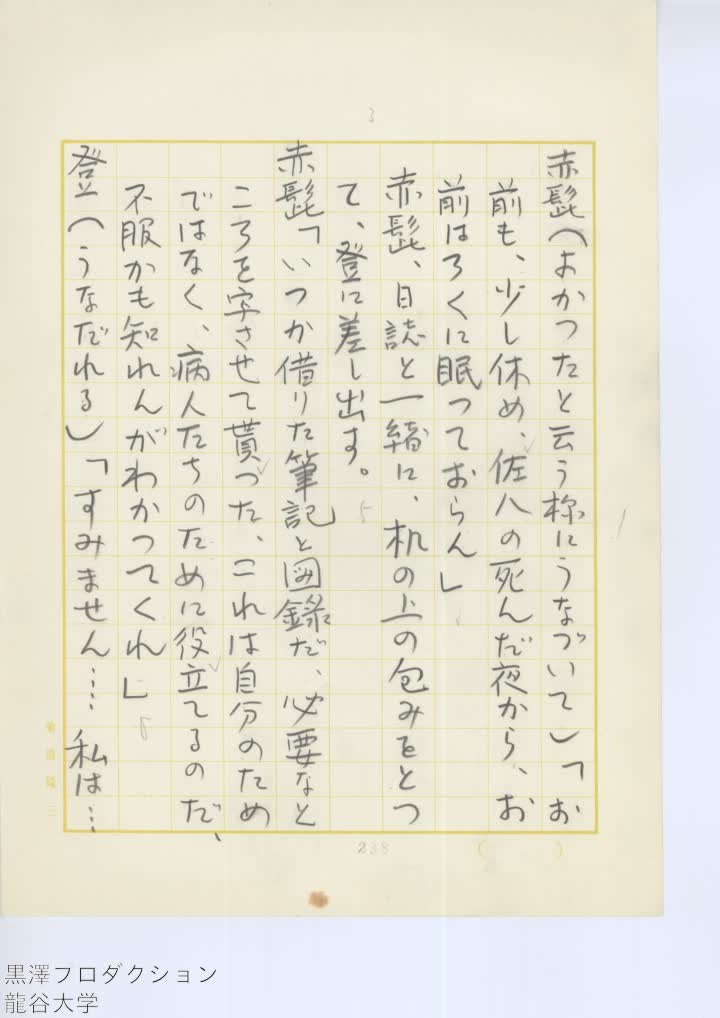 3
赤髭（よかつたと云う様にうなづいて）「お
前も、少し休め、佐八の死んだ夜から、お
前はろくに眠つておらん」
赤髭、日誌と一緒に、机の上の包みをとつ
て、登に差し出す。
赤髭「いつか借りた筆記と図録だ、必要なと
ころを字させて貰つた、これは自分のため
ではなく、病人たちのために役立てるのだ、
不服かも知れんがわかつてくれ」
登（うなだれる）「すみません……私は…
238
黒澤プロダクション
龍谷大学